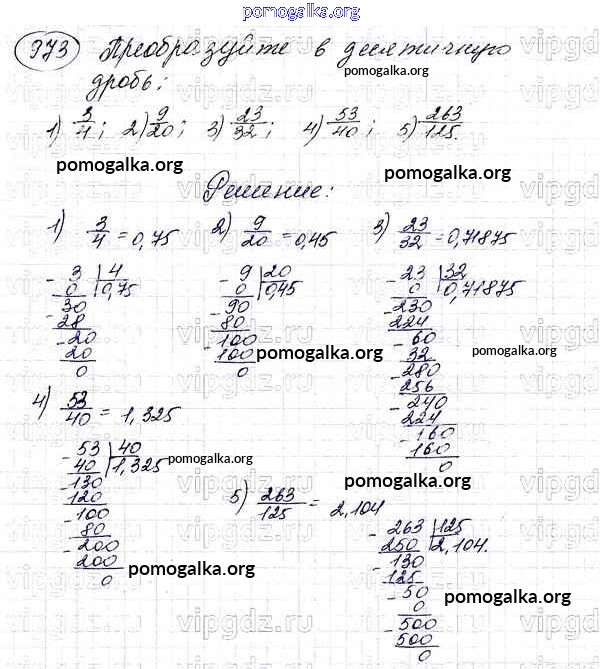 pomogalka.org
973 Преобразуйте в десятичную
дробь:
pomogalka.org
1) 3/4; 2) 9/20; 3) 23/32; 4) 53/40; 5) 263/125.
pomogalka.org
pomogalka.org
Решение:
1) 3/4 = 0,75 2) 9/20 = 0,45 3) 23/32 = 0,71875
- 3 | 4
0 | 0,75
- 30
28
- 20
20
0
- 9 | 20
0 | 0,45
- 90
80
- 100
100
0
pomogalka.org
- 23 | 32
0 | 0,71875
- 230
224
- 60
32
- 280
256
- 240
224
- 160
160
0
pomogalka.org
4) 53/40 = 1,325
- 53 | 40
40 | 1,325
- 130
120
- 100
80
- 200
200
0
pomogalka.org
pomogalka.org
5) 263/125 = 2,104
- 263 | 125
250 | 2,104.
- 130
125
- 50
0
- 500
500
0
pomogalka.org
pomogalka.org
vipgdz.ru